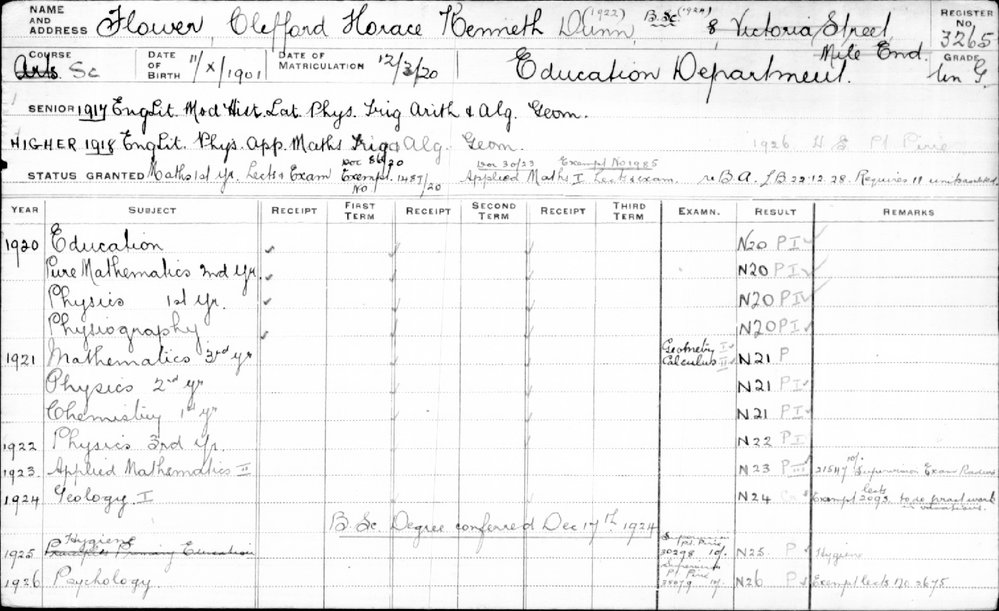 NAME AND ADDRESS Flower, Clifford Horace Kenneth Dunn (1922) B.Sc. (1924) 8, Victoria Street, Mile End. REGISTER No. 3265
COURSE Arts Sc DATE OF BIRTH 11/X/1901 DATE OF MATRICULATION 12/3/20 Education Department. GRADE Un G.
SENIOR 1917 Eng Lit. Mod Hist. Lat. Phys. Trig Arith & Alg. Geom.
HIGHER 1918 Eng Lit. Phys. App. Maths Trig & Alg. Geom. 1926 H S Pt Pirie
STATUS GRANTED Maths 1st yr. Lects & Exam Exempt. No 1487/20 Doc 30/23 Exempt No 1985 Applied Maths I Lects & exam. re B.A. 22.12.28. Requires 11 units
YEAR SUBJECT RECEIPT FIRST TERM RECEIPT SECOND TERM RECEIPT THIRD TERM EXAMN. RESULT REMARKS
1920 Education N20 P I
Pure Mathematics 2nd Yr. N20 P I
Physics 1st Yr. N20 P I
Physiography N20 P I
1921 Mathematics 3rd yr Geometry I Calculus II N21 P
Physics 2nd yr N21 P I
Chemistry 1st yr N21 P I
1922 Physics 3rd Yr. N22 P I
1923 Applied Mathematics II N23 P III 21547 10/- Supervision Exam
1924 Geology I N24 Exempt 2093 lects to do pract work
B.Sc. Degree conferred Dec 17th 1924
1925 Hygiene Principles Primary Education Supervision Pt. Pirie 30298 10/- N25 P Hygiene
1926 Psychology Supervision Pt Pirie 35079 10/- N26 P Exempt lects No. 2675